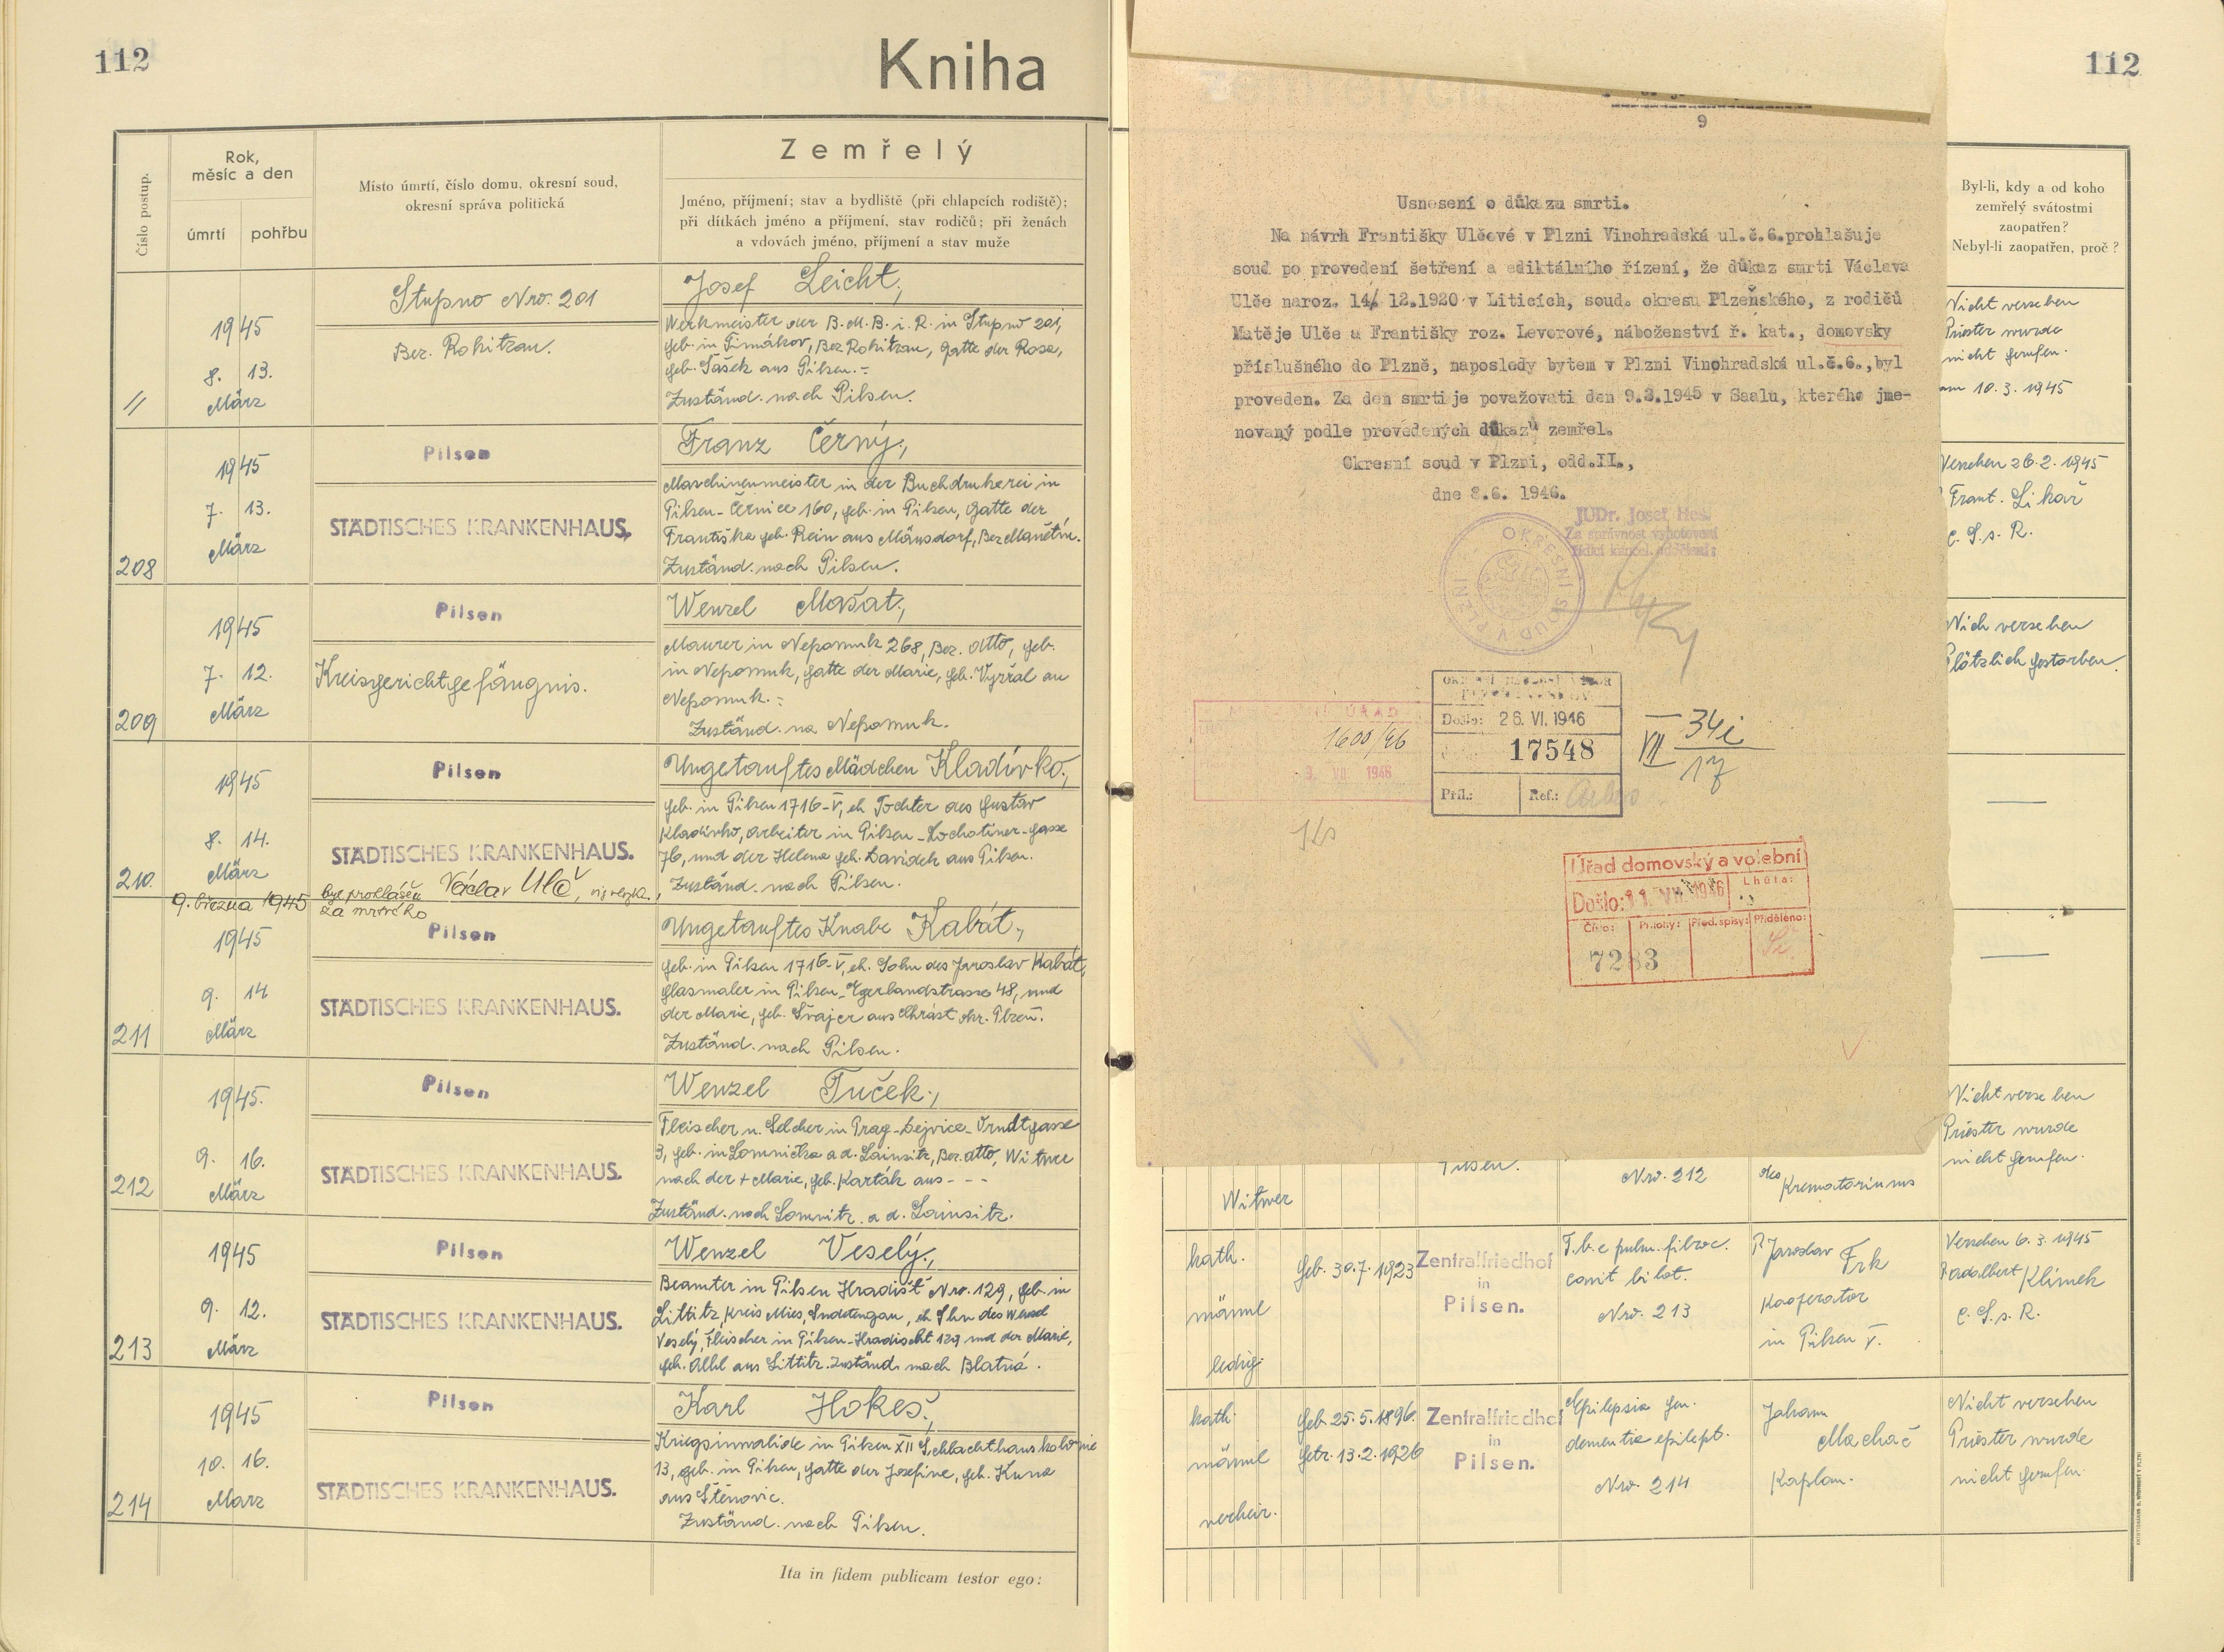 112
Kniha
112
Číslo postup.
Rok,
měsíc a den
úmrtí
pohřbu
Místo úmrtí, číslo domu, okresní soud,
okresní správa politická
Zemřelý
Jméno, příjmení; stav a bydliště (při chlapcích rodiště);
při dítkách jméno a příjmení, stav rodičů; při ženách
a vdovách jméno, příjmení a stav muže
//
1945
8. 13.
März
Stupno Nro. 201
Bez. Rokitzan.
Josef Leicht,
Werkmeister der B.M.B.i.R. in Stupno 201,
geb. in Timákov, Bez Rokitzan, Gatte der Rosa,
geb. Šašek aus Pilsen.-
Zuständ. nach Pilsen.
208
1945
7. 13.
März
Pilsen
STÄDTISCHES KRANKENHAUS.
Franz Černý,
Maschinenmeister in der Buchdruckerei in
Pilsen-Černice 160, geb. in Pilsen, Gatte der
Františka geb. Rein aus Mänsdorf, Bez Manětín.
Zuständ. nach Pilsen.
209
1945
7. 12.
März
Pilsen
Kreisgerichtgefängnis.
Wenzel Mašat,
Maurer in Nepomuk 268, Bez. dtto, geb.
in Nepomuk, Gatte der Marie, geb. Vyřral au
Nepomuk.-
Zuständ. na Nepomuk.
210.
1945
8. 14.
März
Pilsen
STÄDTISCHES KRANKENHAUS.
Ungetauftes Mädchen Kladívko,
geb. in Pilsen 1716-V, eh Tochter des Gustav
Kladívko, Arbeiter in Pilsen-Lochotiner-gasse
76, und der Helena geb. Davídek aus Pilsen.
Zuständ. nach Pilsen.
9. března 1945 byl prohlášen Václav Ulč,
za mrtvého
211
1945
9. 14
März
Pilsen
STÄDTISCHES KRANKENHAUS.
Ungetauftes Knabe Kabát,
geb. in Pilsen 1716-V, eh. Sohn des Jaroslav Kabát,
Glasmaler in Pilsen-Egerlandstrasse 48, und
der Marie, geb. Švajcr aus Chrást okr. Plzeň.
Zuständ. nach Pilsen.
212
1945.
9. 16.
März
Pilsen
STÄDTISCHES KRANKENHAUS.
Wenzel Tuček,
Fleischer u. Selcher in Prag-Dejvice-Arndtgasse
3, geb. in Lomnička a d. Lainsitz, Bez. dtto, Witwer
nach der + Marie, geb. Karták aus - - -
Zuständ. nach Lomnitz a d. Lainsitz.
213
1945
9. 12.
März
Pilsen
STÄDTISCHES KRANKENHAUS.
Wenzel Veselý,
Beamter in Pilsen Hradišť Nro. 129, geb. in
Littitz, Kreis Mies, Sudetengau, eh Sohn des Wenzel
Veselý, Fleischer in Pilsen-Hradischt 129 und der Marie,
geb. aus Littitz. Zuständ. nach Blatná.
214
1945
10. 16.
März
Pilsen
STÄDTISCHES KRANKENHAUS.
Karl Hokeš,
Kriegsinvalide in Pilsen XII Schlachthauskolonie
13, geb. in Pilsen, Gatte der Josefine, geb. Kuna
aus Štěnovic.
Zuständ. nach Pilsen.
Ita in fidem publicam testor ego:
9
Usnesení o důkazu smrti.
Na návrh Františky Ulčové v Plzni Vinohradská ul.č.6.prohlašuje
soud po provedení šetření a ediktálního řízení, že důkaz smrti Václava
Ulče naroz. 14/ 12.1920 v Liticích, soud. okresu Plzeňského, z rodičů
Matěje Ulče a Františky roz. Leverové, náboženství ř. kat., domovsky
příslušného do Plzně, naposledy bytem v Plzni Vinohradská ul.č.6.,byl
proveden. Za den smrti je považovati den 9.3.1945 v Saalu, kterého jme-
novaný podle provedených důkazů zemřel.
Okresní soud v Plzni, odd.II.,
dne 8.6. 1946.
JUDr. Josef Heš
Za správnost vyhotovení
řídící kancel. oddělení:
OKRESNÍ SOUD V PLZNI
ÚŘAD
1600/46
VII 1946
Došlo: 26. VI. 1946
17548
Příl.:
Ref.:
VII 34i
17
Úřad domovský a volební
Došlo: 11. VII. 1946
Lhůta:
Číslo:
Přílohy:
Před. spisy:
Přiděleno:
7283
Byl-li, kdy a od koho
zemřelý svátostmi
zaopatřen?
Nebyl-li zaopatřen, proč?
Nicht versehen
Priester wurde
nicht gerufen.
am 10. 3. 1945
Versehen 26. 2. 1945
Frant. Likař
C. S. s. R.
Nich versehen
Plötzlich gestorben.
Nicht versehen
Priester wurde
nicht gerufen.
Witwer
Pilsen.
Nro. 212
des
Krematoriums
kath.
männl
ledig.
geb. 30.7.1923
Zentralfriedhof
in
Pilsen.
T.b.c pulm. fibroc.
cavit bilat.
Nro. 213
P. Jaroslav Frk
Kooperator
in Pilsen V.
Versehen 6. 3. 1945
P. Adalbert Klimek
C. S. s. R.
kath.
männl
verheir.
geb. 25.5.1896.
getr. 13.2.1926
Zentralfriedhof
in
Pilsen.
Epilepsia gen.
dementia epilept.
Nro. 214
Johann
Machač
Kaplan.
Nicht versehen
Priester wurde
nicht gerufen.